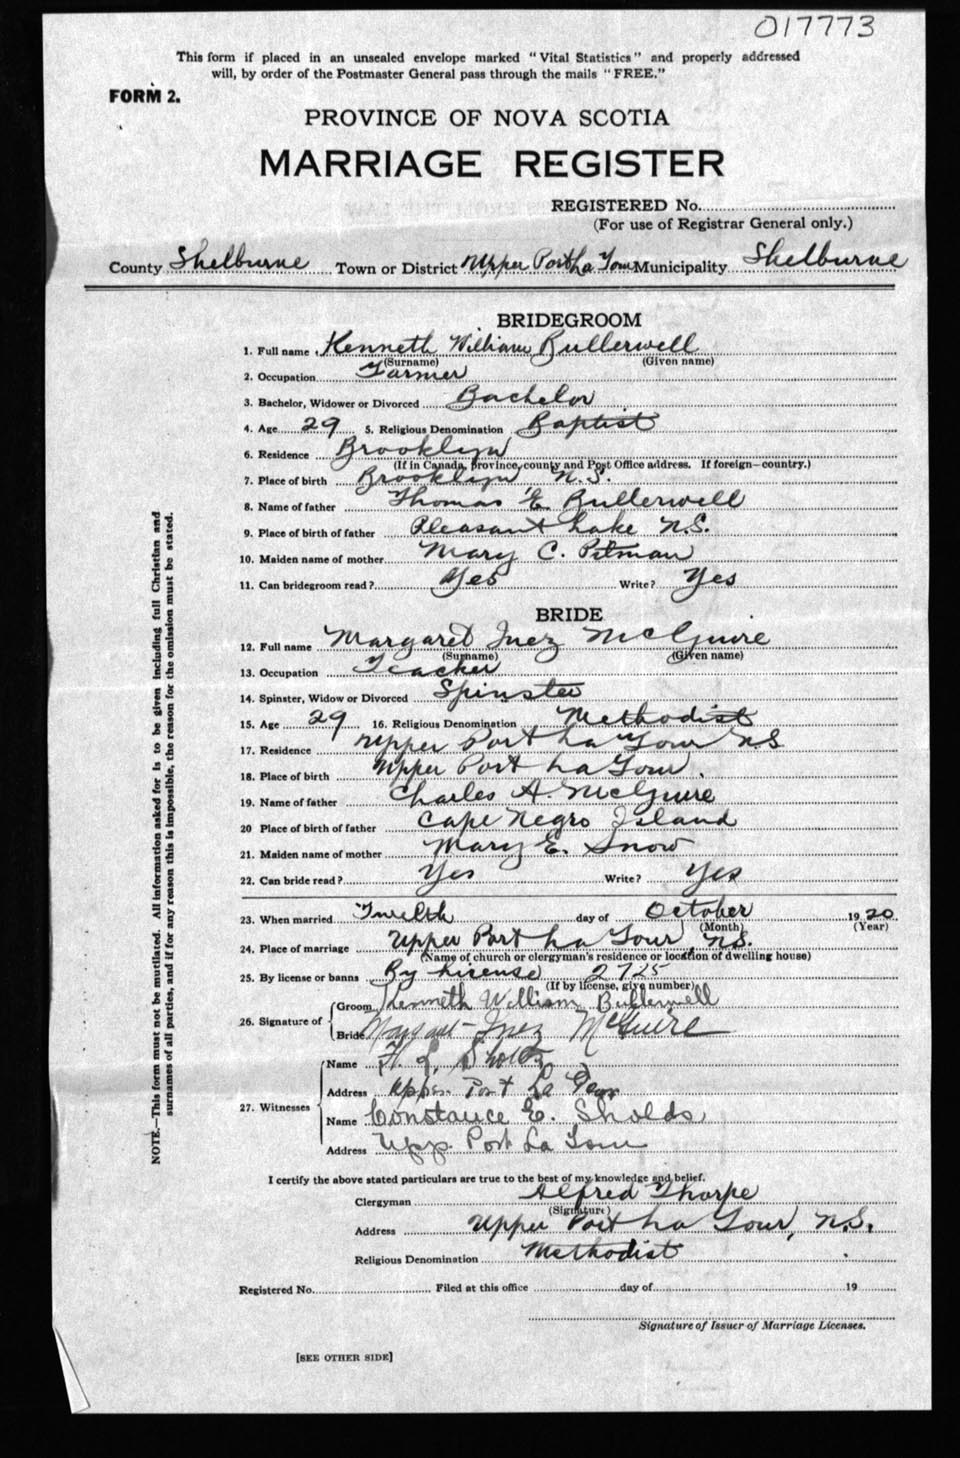 017773
This form if placed in an unsealed envelope marked "Vital Statistics" and properly addressed
will, by order of the Postmaster General pass through the mails "FREE."
FORM 2.
PROVINCE OF NOVA SCOTIA
MARRIAGE REGISTER
REGISTERED No.
(For use of Registrar General only.)
County Shelburne Town or District Upper Port La Tour Municipality Shelburne
BRIDEGROOM
1. Full name Kenneth William Bullerwell
(Surname) (Given name)
2. Occupation Farmer
3. Bachelor, Widower or Divorced Bachelor
4. Age 29 5. Religious Denomination Baptist
6. Residence Brooklyn
(If in Canada, province, county and Post Office address. If foreign—country.)
7. Place of birth Brooklyn N.S.
8. Name of father Thomas E. Bullerwell
9. Place of birth of father Pleasant Lake N.S.
10. Maiden name of mother Mary C. Pitman
11. Can bridegroom read? Yes Write? Yes
BRIDE
12. Full name Margaret Inez McGuire
(Surname) (Given name)
13. Occupation Teacher
14. Spinster, Widow or Divorced Spinster
15. Age 29 16. Religious Denomination Methodist
17. Residence Upper Port La Tour N.S
18. Place of birth Upper Port La Tour.
19. Name of father Charles A. McGuire
20 Place of birth of father Cape Negro Island
21. Maiden name of mother Mary E. Snow
22. Can bride read? Yes Write? Yes
23. When married Twelth day of October 1920
(Month) (Year)
24. Place of marriage Upper Port La Tour, N.S.
(Name of church or clergyman's residence or location of dwelling house)
25. By license or banns By License 2725
(If by license, give number)
26. Signature of Groom Kenneth William Bullerwell
Bride Margaret Inez McGuire
27. Witnesses
Name
Address Upper Port La Tour
Name Constance E. Sholds
Address Upp. Port La Tour
I certify the above stated particulars are true to the best of my knowledge and belief.
Clergyman Alfred Thorpe
(Signature)
Address Upper Port La Tour, N.S.
Religious Denomination Methodist
Registered No. Filed at this office day of 19
Signature of Issuer of Marriage Licenses.
[SEE OTHER SIDE]
NOTE.—This form must not be mutilated. All information asked for is to be given including full Christian and
surnames of all parties, and if for any reason this is impossible, the reason for the omission must be stated.